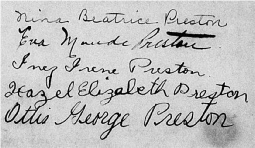 Nina Beatrice Preston
Eva Maude Preston
Inez Irene Preston
Hazel Elizabeth Preston
Ottis George Preston